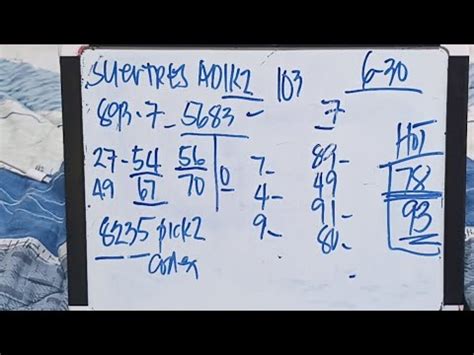 SUERTRES ADIK2 103 6-30
893-7_5683 ✓ 7
27-54 56 0 7- 89- HOT
49 67 70 4- 49 78
9- 91- 93
8235 pick2 80-